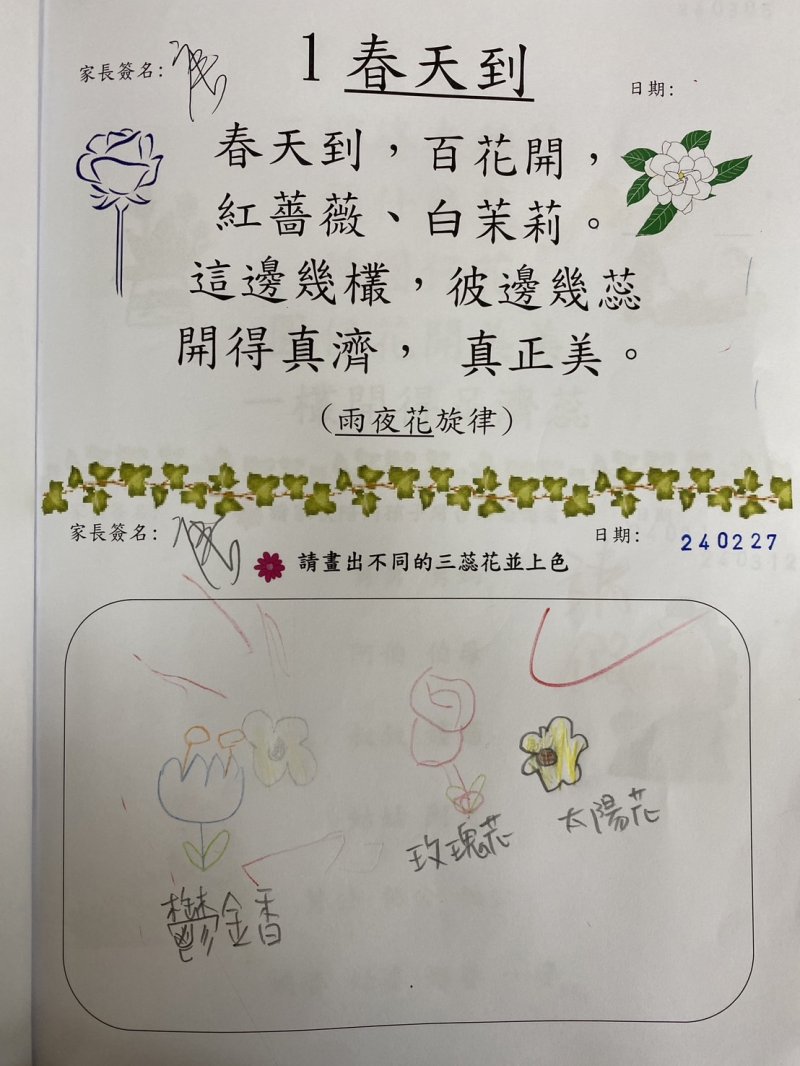 家長簽名：
1 春天到
日期：
春天到，百花開，
紅薔薇、白茉莉。
這邊幾欉，彼邊幾蕊
開得真濟， 真正美。
（雨夜花旋律）
家長簽名：
日期：
240227
請畫出不同的三蕊花並上色
玫瑰花
太陽花
鬱金香